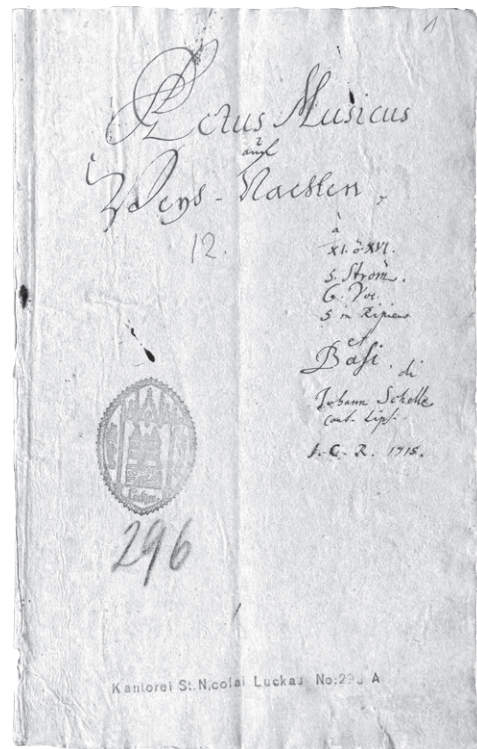 1
Actus Musicus
auf
Weys-Nachten,
12.
à
XI. ò XVI.
5. Strom.
6. Voc.
5 in Ripieno
et
Bassi.
di
Johann Schelle
cant. Lips.
J. C. R. 1715.
296
Kantorei St. Nicolai Luckau No: 296 A